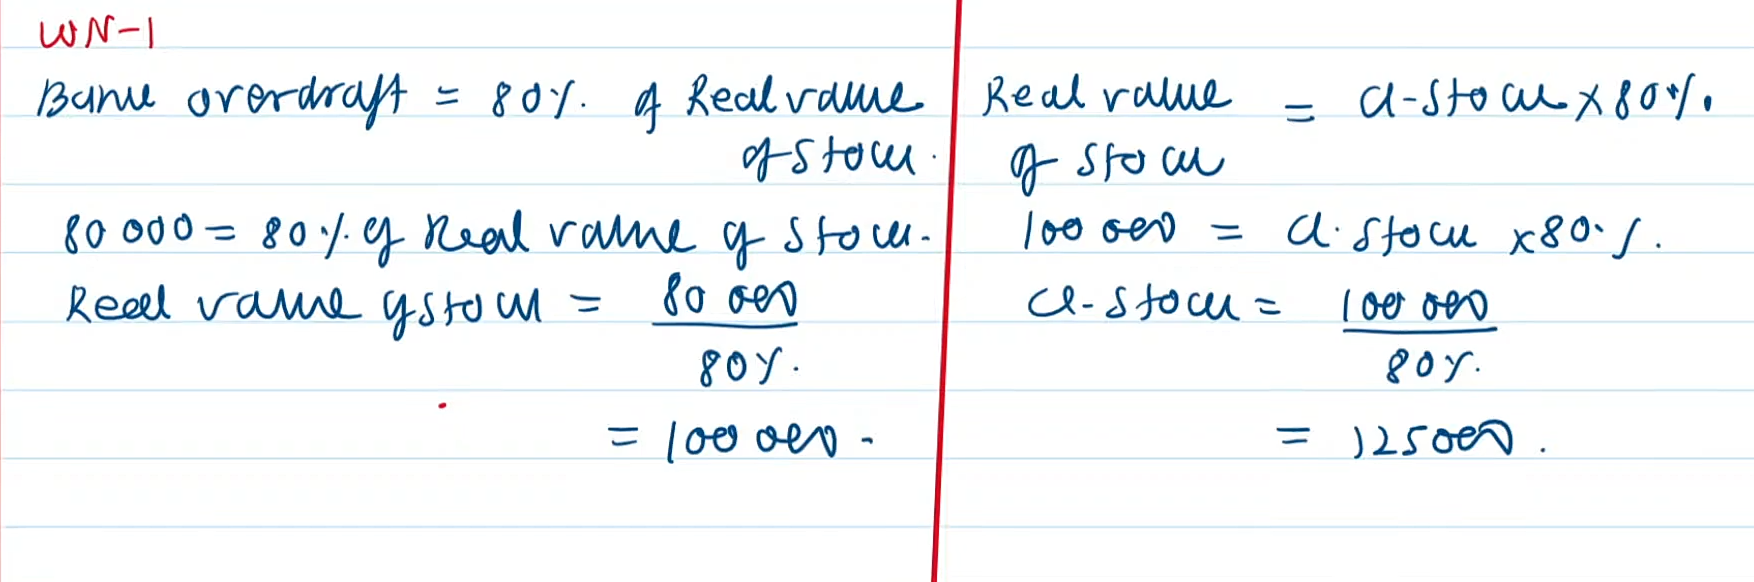 WN-1
Bank overdraft = 80% of Real value
of stock.
80 000 = 80% of Real value of stock.
Real value of stock = 80 000
80%.
= 100 000 -
Real value = cl-stock x 80%.
of stock
100 000 = cl. stock x 80%.
cl-stock = 100 000
80%.
= 125000.